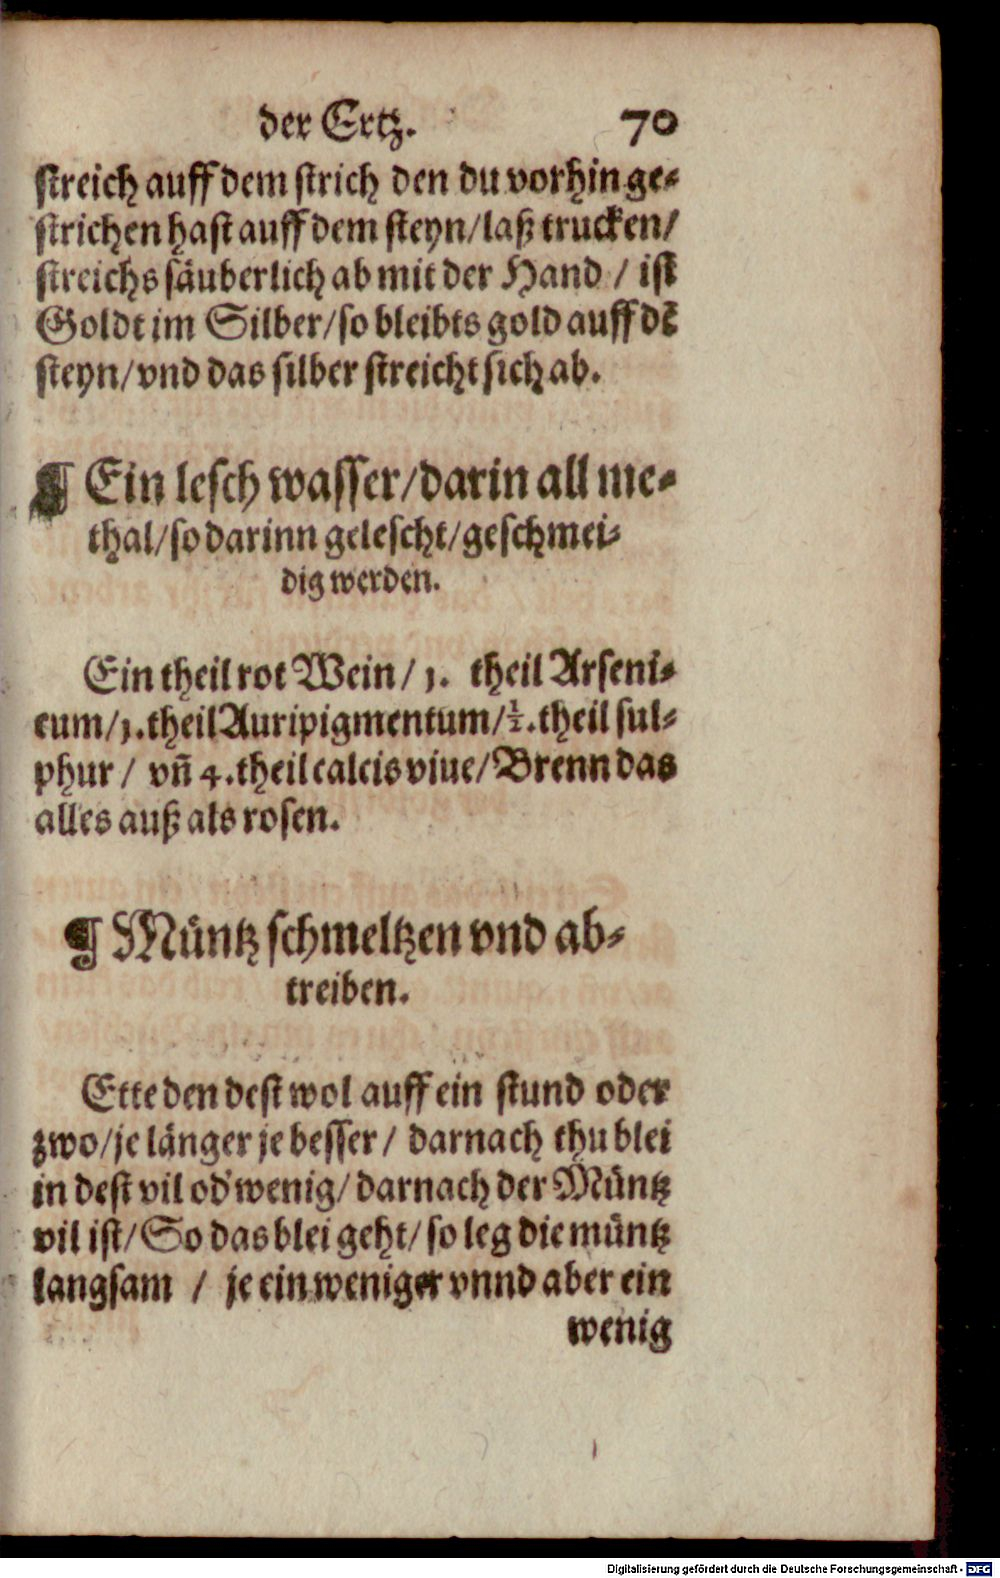 der Ertz. 70
streich auff dem strich den du vorhin ge-
strichen hast auff dem steyn/laß trucken/
streichs säuberlich ab mit der Hand / ist
Goldt im Silber/so bleibts gold auff dẽ
steyn/vnd das silber streicht sich ab.
¶ Ein lesch wasser/darin all me-
thal/so darinn gelescht/geschmei-
dig werden.
Ein theil rot Wein/ 1. theil Arseni-
cum/1.theil Auripigmentum/½.theil sul-
phur / vñ 4.theil calcis viue/Brenn das
alles auß als rosen.
¶ Müntz schmeltzen vnd ab-
treiben.
Ette den dest wol auff ein stund oder
zwo/je länger je besser/ darnach thu blei
in dest vil od' wenig/darnach der Müntz
vil ist/So das blei geht/so leg die müntz
langsam / je ein weniger vnnd aber ein
wenig
Digitalisierung gefördert durch die Deutsche Forschungsgemeinschaft - DFG